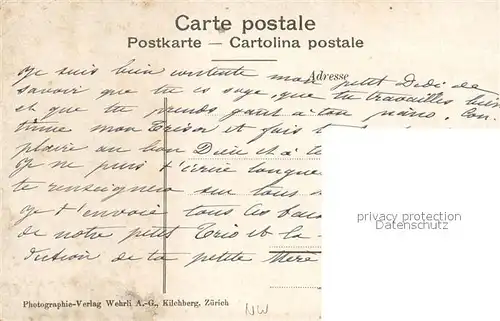 Carte postale
Postkarte — Cartolina postale
Adresse
Je suis bien contente mon petit Dedi de
savoir que tu es sage, que tu travailles bien
et que tu prends goût à ton piano. Con-
tinue mon Trésor et fais
plaire au bon Dieu et à
Je ne puis t'écrire longue
te renseignera sur tous
Je t'envoie tous les
de notre petit Trio et la
de ta petite Mère
privacy protection
Datenschutz
Photographie-Verlag Wehrli A.-G., Kilchberg, Zürich
NW